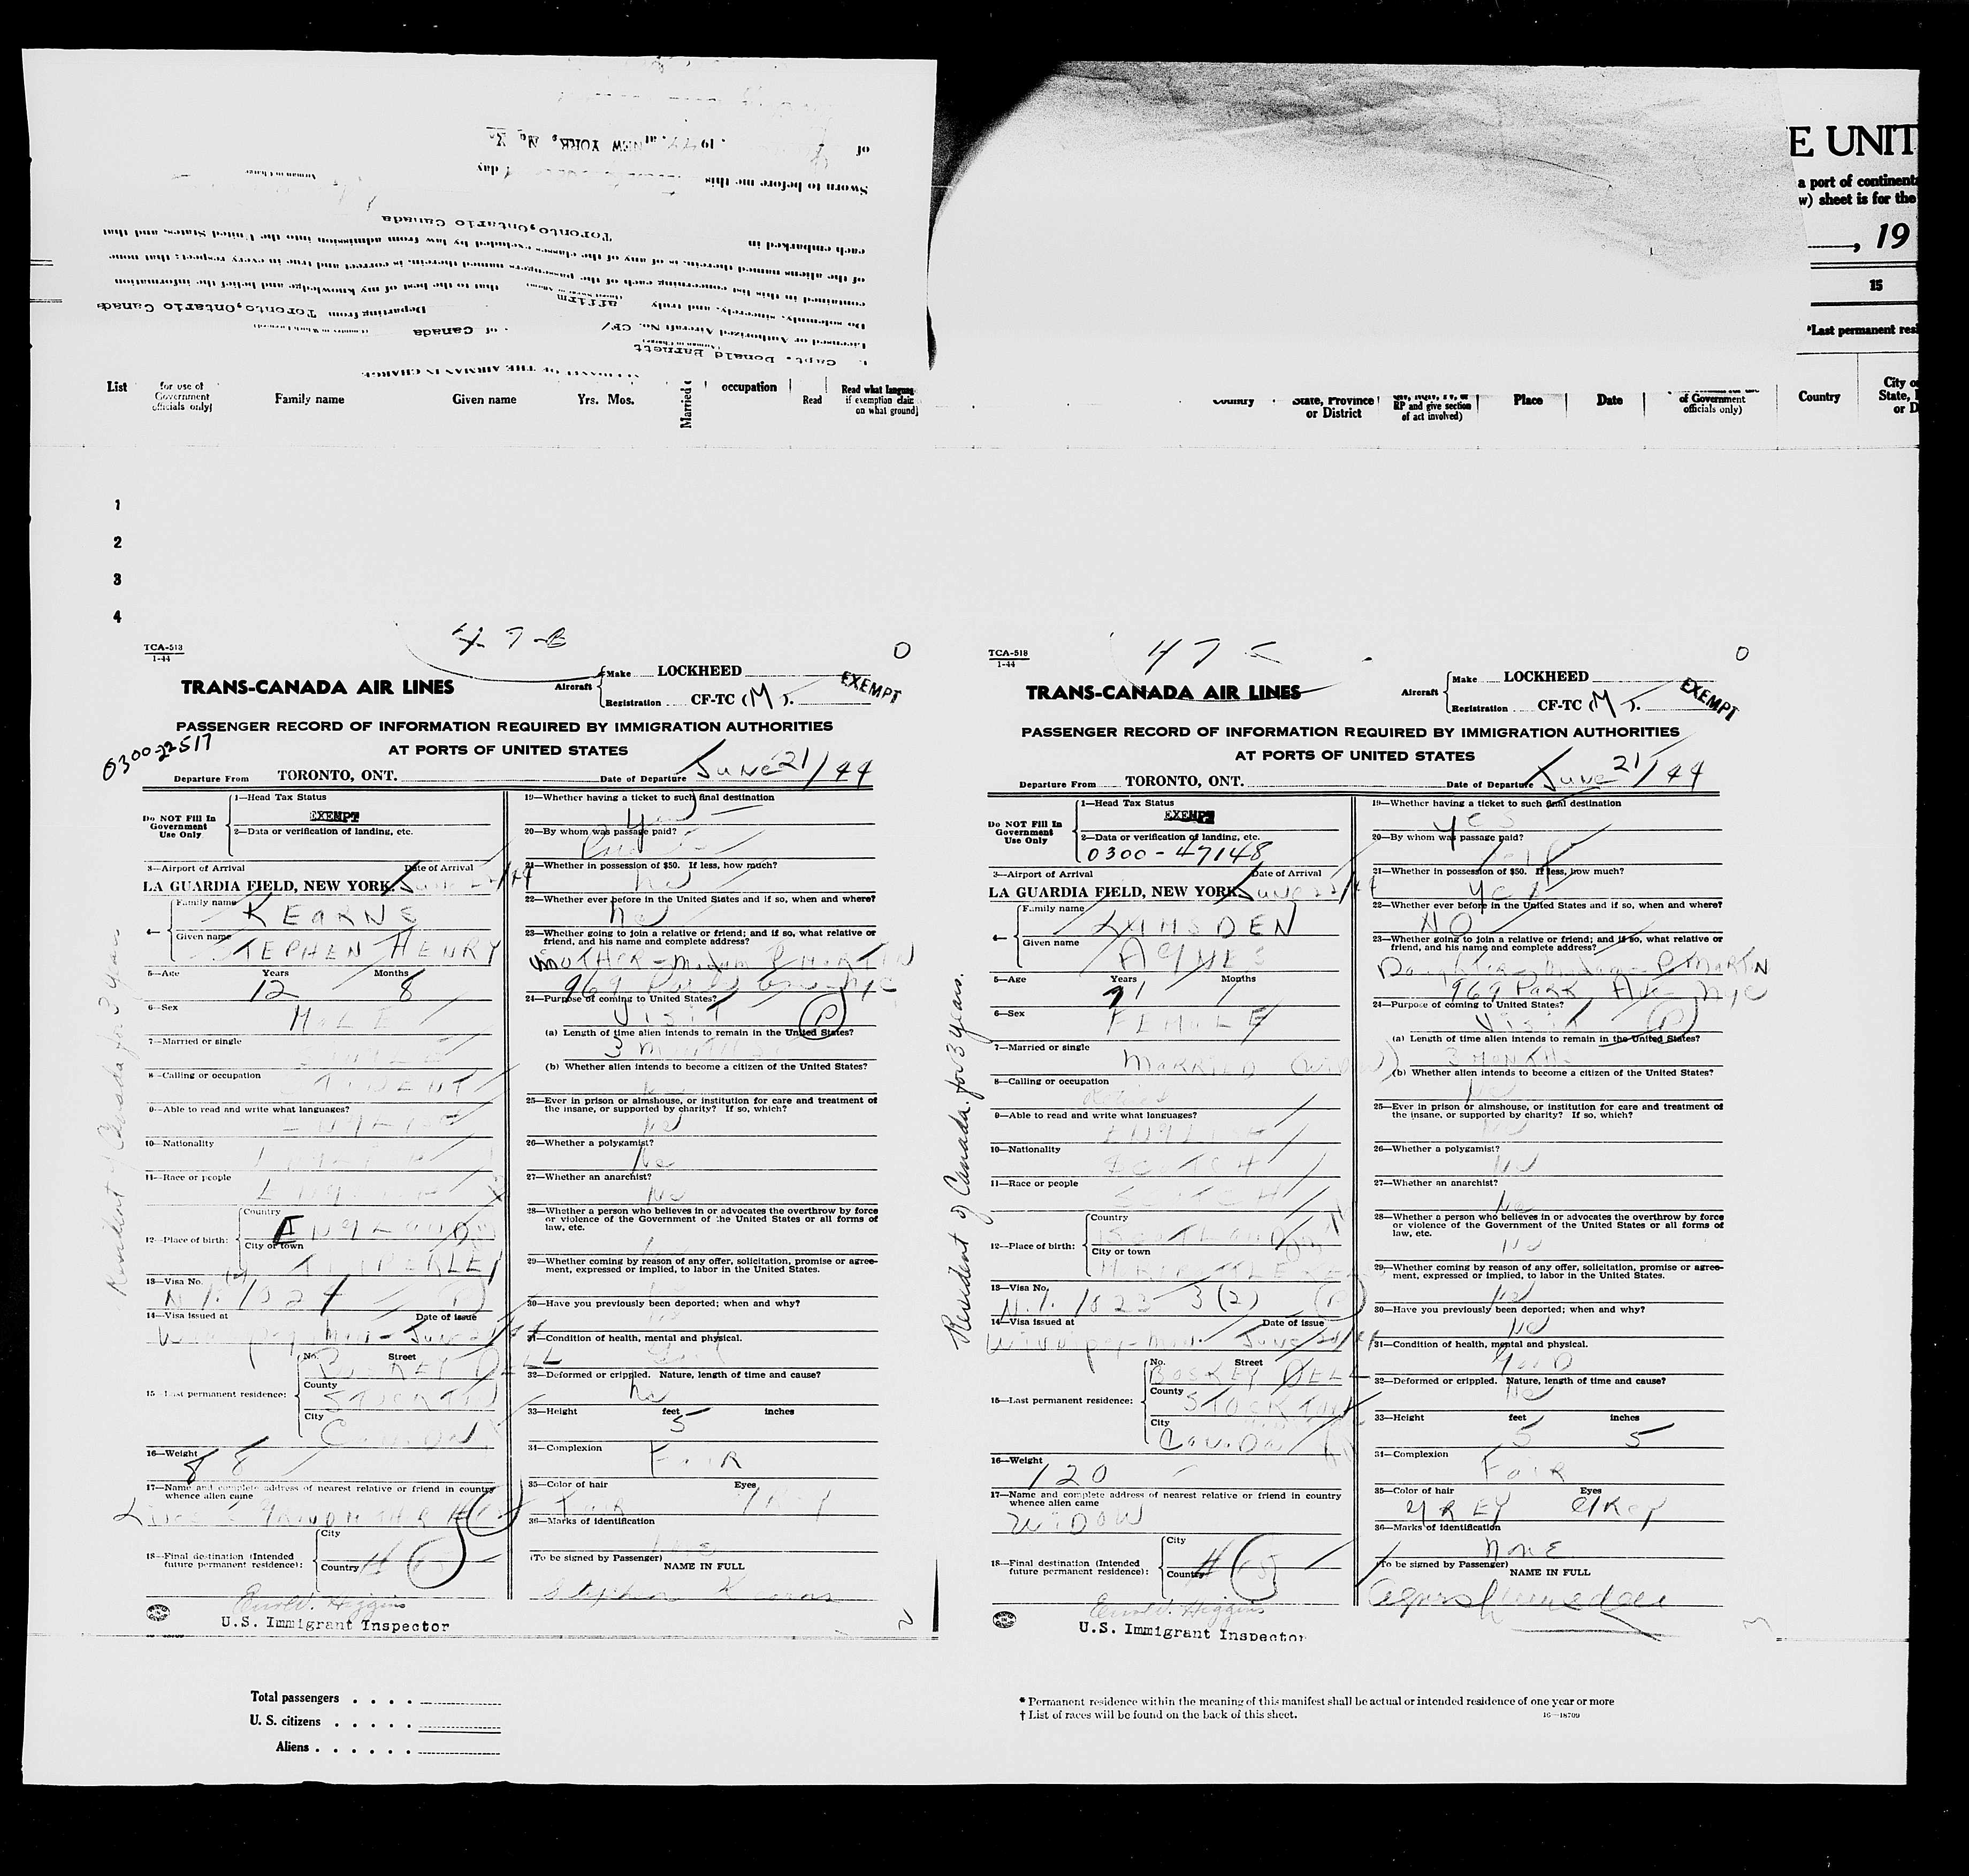 of
, 19 at NEW YORK, N. Y.
Sworn to before me this day
each embarked in Toronto, Ontario Canada
of the aliens named therein, is of any of the classes excluded by law from admission into the United States, and that
contained in this list concerning each of the passengers named therein, is correct and true in every respect; that none
Do solemnly, sincerely, and truly affirm that to the best of my knowledge and belief the information
Licensed or Authorized Aircraft No. CF/ of Canada Departing from Toronto, Ontario Canada
Capt. Donald Barnett
OF THE AIRMAN IN CHARGE
E UNIT
a port of continent
w) sheet is for the
, 19
15
*Last permanent resi
List
for use of Government officials only)
Family name
Given name
Yrs. Mos.
Married
occupation
Read
Read what language if exemption claim on what ground)
Country
State, Province or District
RP and give section of act involved)
Place
Date
of Government officials only)
Country
City o
State,
or D
1
2
3
4
TCA-513
1-44
47-B
TRANS-CANADA AIR LINES
Aircraft
Make LOCKHEED
Registration CF-TC (M).
EXEMPT
PASSENGER RECORD OF INFORMATION REQUIRED BY IMMIGRATION AUTHORITIES
AT PORTS OF UNITED STATES
0300-22517
Departure From TORONTO, ONT. Date of Departure June 21/44
Do NOT Fill In Government Use Only
1—Head Tax Status
EXEMPT
2—Data or verification of landing, etc.
3—Airport of Arrival Date of Arrival
LA GUARDIA FIELD, NEW YORK.
4— Family name KEARNS
Given name STEPHEN HENRY
5—Age Years 12 Months 8
6—Sex MALE
7—Married or single
8—Calling or occupation STUDENT
9—Able to read and write what languages?
10—Nationality
11—Race or people
12—Place of birth: Country ENGLAND
City or town
13—Visa No. N.I. 1024
14—Visa issued at Date of issue
15—Last permanent residence: No. Street BOSKEY DELL
County STOCKTON
City Canada
16—Weight 88
17—Name and complete address of nearest relative or friend in country whence alien came
18—Final destination (Intended future permanent residence): City
Country
U.S. Immigrant Inspector
19—Whether having a ticket to such final destination
Yes
20—By whom was passage paid?
21—Whether in possession of $50. If less, how much?
22—Whether ever before in the United States and if so, when and where?
No
23—Whether going to join a relative or friend; and if so, what relative or friend, and his name and complete address?
MOTHER - Madam P MARTIN
969 Park Ave NYC
24—Purpose of coming to United States?
Visit (P)
(a) Length of time alien intends to remain in the United States?
3 months
(b) Whether alien intends to become a citizen of the United States?
25—Ever in prison or almshouse, or institution for care and treatment of the insane, or supported by charity? If so, which?
No
26—Whether a polygamist?
No
27—Whether an anarchist?
No
28—Whether a person who believes in or advocates the overthrow by force or violence of the Government of the United States or all forms of law, etc.
29—Whether coming by reason of any offer, solicitation, promise or agreement, expressed or implied, to labor in the United States.
30—Have you previously been deported; when and why?
31—Condition of health, mental and physical.
32—Deformed or crippled. Nature, length of time and cause?
No
33—Height feet 5 inches
34—Complexion FAIR
35—Color of hair FAIR Eyes GREY
36—Marks of identification
(To be signed by Passenger) NAME IN FULL
Stephen Kearns
Resident of Canada for 3 years
TCA-513
1-44
47
TRANS-CANADA AIR LINES
Aircraft
Make LOCKHEED
Registration CF-TC (M).
EXEMPT
PASSENGER RECORD OF INFORMATION REQUIRED BY IMMIGRATION AUTHORITIES
AT PORTS OF UNITED STATES
Departure From TORONTO, ONT. Date of Departure June 21/44
Do NOT Fill In Government Use Only
1—Head Tax Status
EXEMPT
2—Data or verification of landing, etc.
0300-47148
3—Airport of Arrival Date of Arrival
LA GUARDIA FIELD, NEW YORK
4— Family name LUMSDEN
Given name AGNES
5—Age Years 71 Months
6—Sex FEMALE
7—Married or single MARRIED (Widow)
8—Calling or occupation Retired
9—Able to read and write what languages? ENGLISH
10—Nationality SCOTCH
11—Race or people SCOTCH
12—Place of birth: Country SCOTLAND
City or town
13—Visa No. N.I. 1023 3(2)
14—Visa issued at Date of issue
Winnipeg - Man.
15—Last permanent residence: No. Street BOSKEY DELL
County STOCKTON
City Canada
16—Weight 120
17—Name and complete address of nearest relative or friend in country whence alien came
WIDOW
18—Final destination (Intended future permanent residence): City
Country
U.S. Immigrant Inspector
19—Whether having a ticket to such final destination
Yes
20—By whom was passage paid?
21—Whether in possession of $50. If less, how much?
Yes
22—Whether ever before in the United States and if so, when and where?
NO
23—Whether going to join a relative or friend; and if so, what relative or friend, and his name and complete address?
Daughter - Madam P MARTIN
969 PARK Ave NYC
24—Purpose of coming to United States?
Visit (P)
(a) Length of time alien intends to remain in the United States?
3 MONTHS
(b) Whether alien intends to become a citizen of the United States?
No
25—Ever in prison or almshouse, or institution for care and treatment of the insane, or supported by charity? If so, which?
No
26—Whether a polygamist?
No
27—Whether an anarchist?
No
28—Whether a person who believes in or advocates the overthrow by force or violence of the Government of the United States or all forms of law, etc.
No
29—Whether coming by reason of any offer, solicitation, promise or agreement, expressed or implied, to labor in the United States.
No
30—Have you previously been deported; when and why?
No
31—Condition of health, mental and physical.
GOOD
32—Deformed or crippled. Nature, length of time and cause?
No
33—Height feet 5 inches 5
34—Complexion FAIR
35—Color of hair GREY Eyes GREY
36—Marks of identification
NONE
(To be signed by Passenger) NAME IN FULL
Agnes Lumsden
Resident of Canada for 3 years.
Total passengers . . . .
U. S. citizens . . . . .
Aliens . . . . . .
* Permanent residence within the meaning of this manifest shall be actual or intended residence of one year or more
† List of races will be found on the back of this sheet.
16—18709